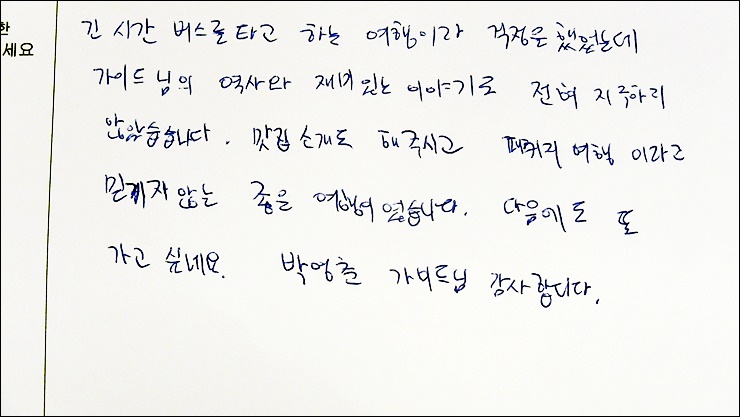 한
세요
긴 시간 버스를타고 하는 여행이라 걱정은했었는데
가이드님의 역사와 재미있는 이야기로 전혀 지루하지
않았습니다. 맛집소개도 해주시고 패키지 여행 이라고
믿겨지않는 좋은 여행이였습니다. 다음에도 또
가고 싶네요. 박영훈 가이드님 감사합니다.